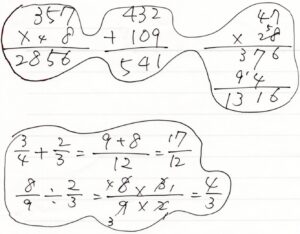 357
× 4 8
2856
432
+ 109
541
47
× 28
5
376
94
1316
3/4 + 2/3 = 9+8/12 = 17/12
8/9 ÷ 2/3 = 4 8 × 3 1 / 3 9 × 2 1 = 4/3